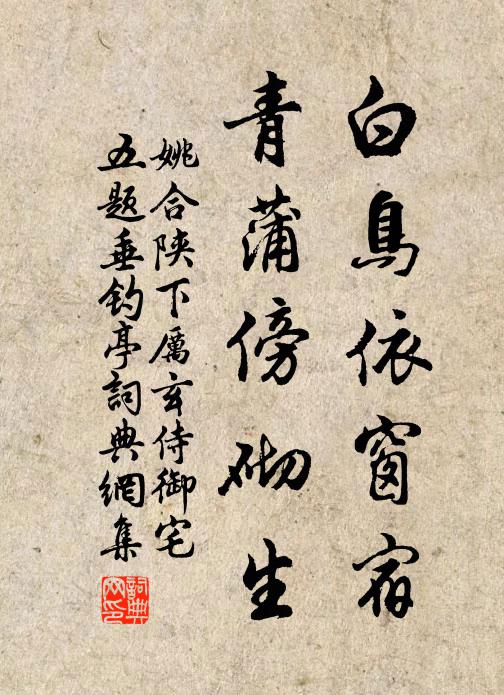 白鳥依窗宿
青蒲傍砌生
姚合陝下厲玄侍御宅
五題垂釣亭詞典網集